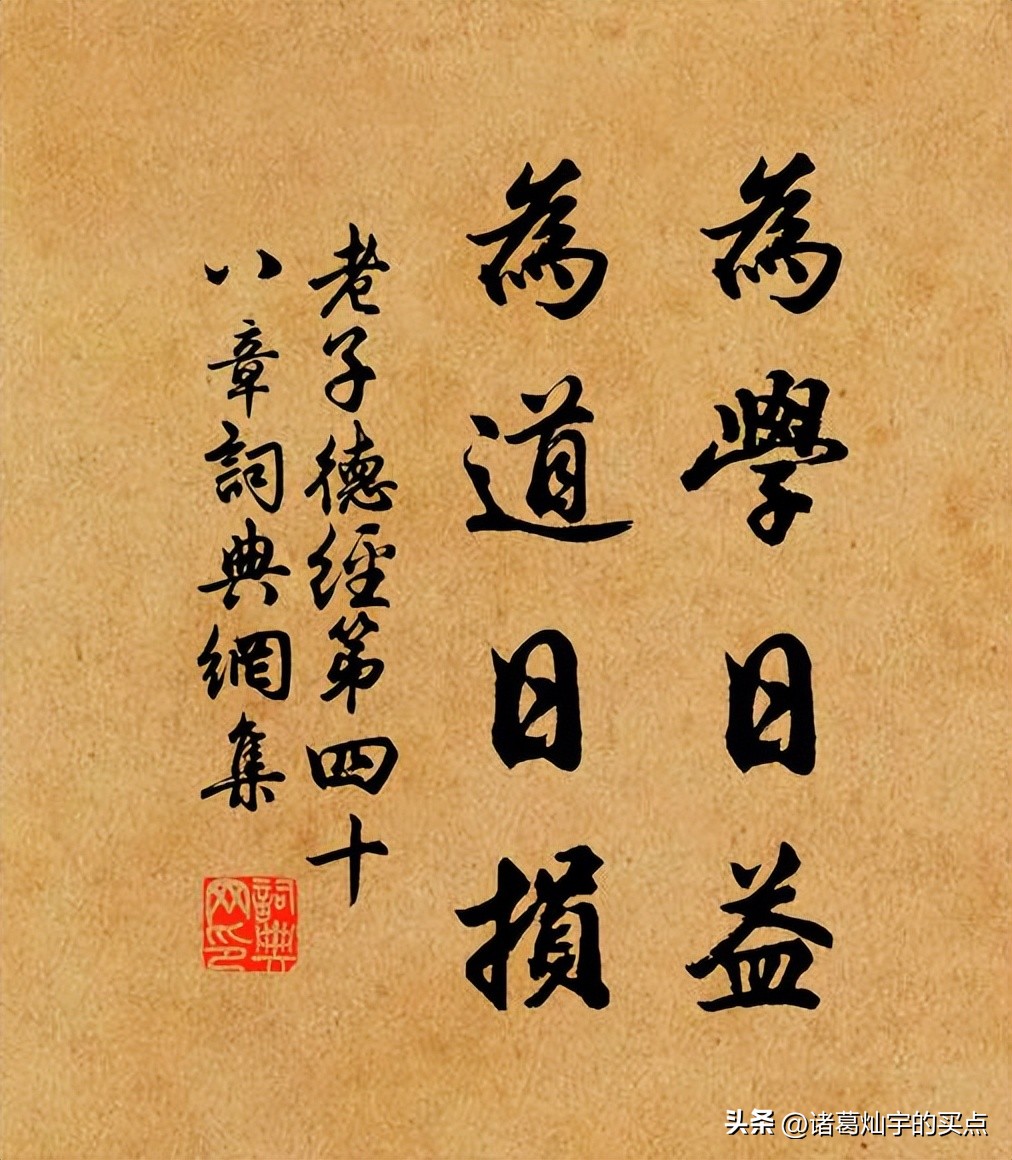 為學日益
為道日損
老子德經第四十
八章詞典網集
詞典
网印
头条 @诸葛灿宇的买点